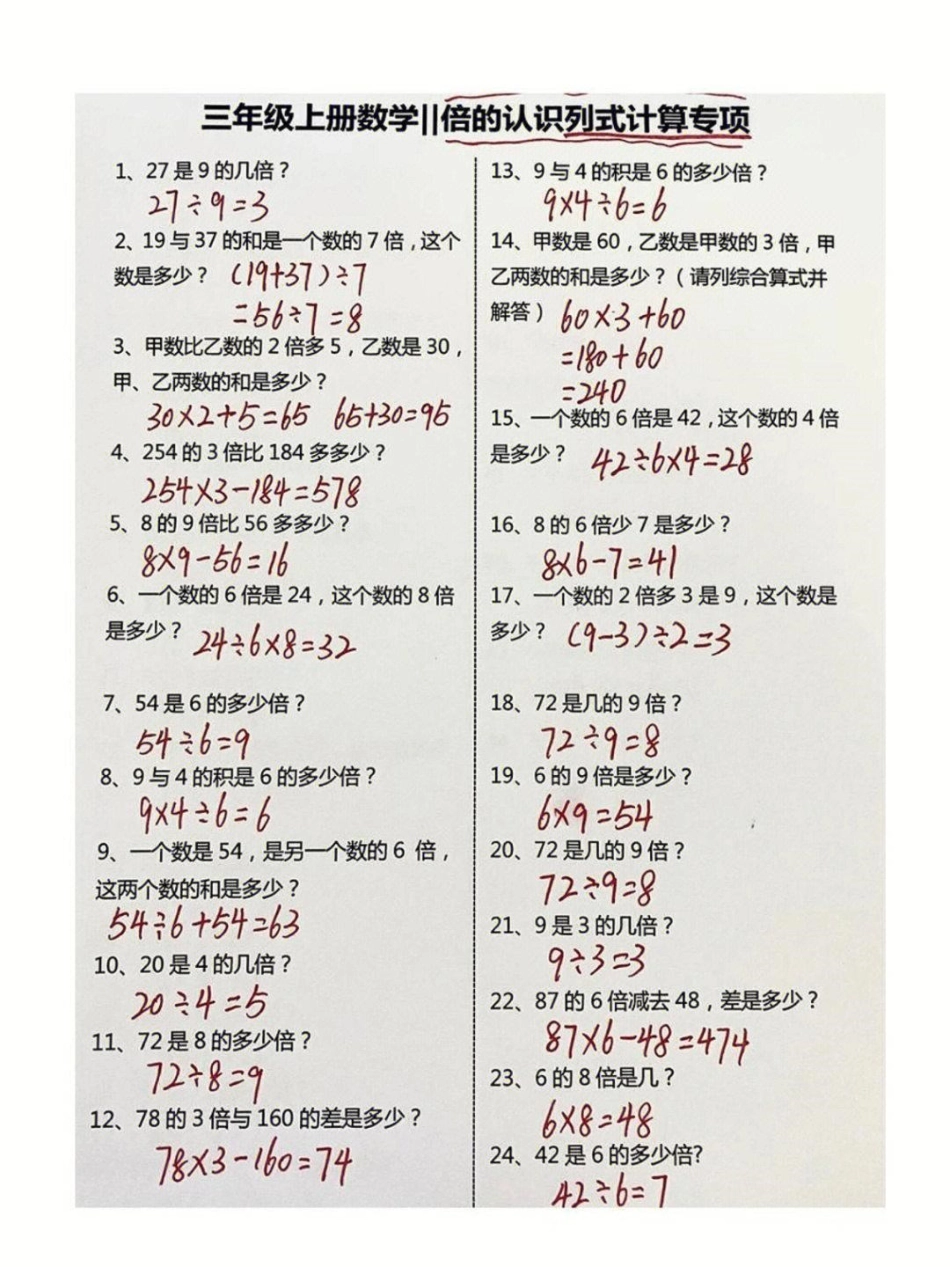 三年级上册数学||倍的认识列式计算专项
1、27是9的几倍？
27÷9=3
2、19与37的和是一个数的7倍，这个
数是多少？ (19+37)÷7
=56÷7=8
3、甲数比乙数的2倍多5，乙数是30，
甲、乙两数的和是多少？
30×2+5=65 65+30=95
4、254的3倍比184多多少？
254×3-184=578
5、8的9倍比56多多少？
8×9-56=16
6、一个数的6倍是24，这个数的8倍
是多少？ 24÷6×8=32
7、54是6的多少倍？
54÷6=9
8、9与4的积是6的多少倍？
9×4÷6=6
9、一个数是54，是另一个数的6 倍，
这两个数的和是多少？
54÷6+54=63
10、20是4的几倍？
20÷4=5
11、72是8的多少倍？
72÷8=9
12、78的3倍与160的差是多少？
78×3-160=74
13、9与4的积是6的多少倍？
9×4÷6=6
14、甲数是60，乙数是甲数的3倍，甲
乙两数的和是多少？（请列综合算式并
解答） 60×3+60
=180+60
=240
15、一个数的6倍是42，这个数的4倍
是多少？ 42÷6×4=28
16、8的6倍少7是多少？
8×6-7=41
17、一个数的2倍多3是9，这个数是
多少？ (9-3)÷2=3
18、72是几的9倍？
72÷9=8
19、6的9倍是多少？
6×9=54
20、72是几的9倍？
72÷9=8
21、9是3的几倍？
9÷3=3
22、87的6倍减去48，差是多少？
87×6-48=474
23、6的8倍是几？
6×8=48
24、42是6的多少倍?
42÷6=7